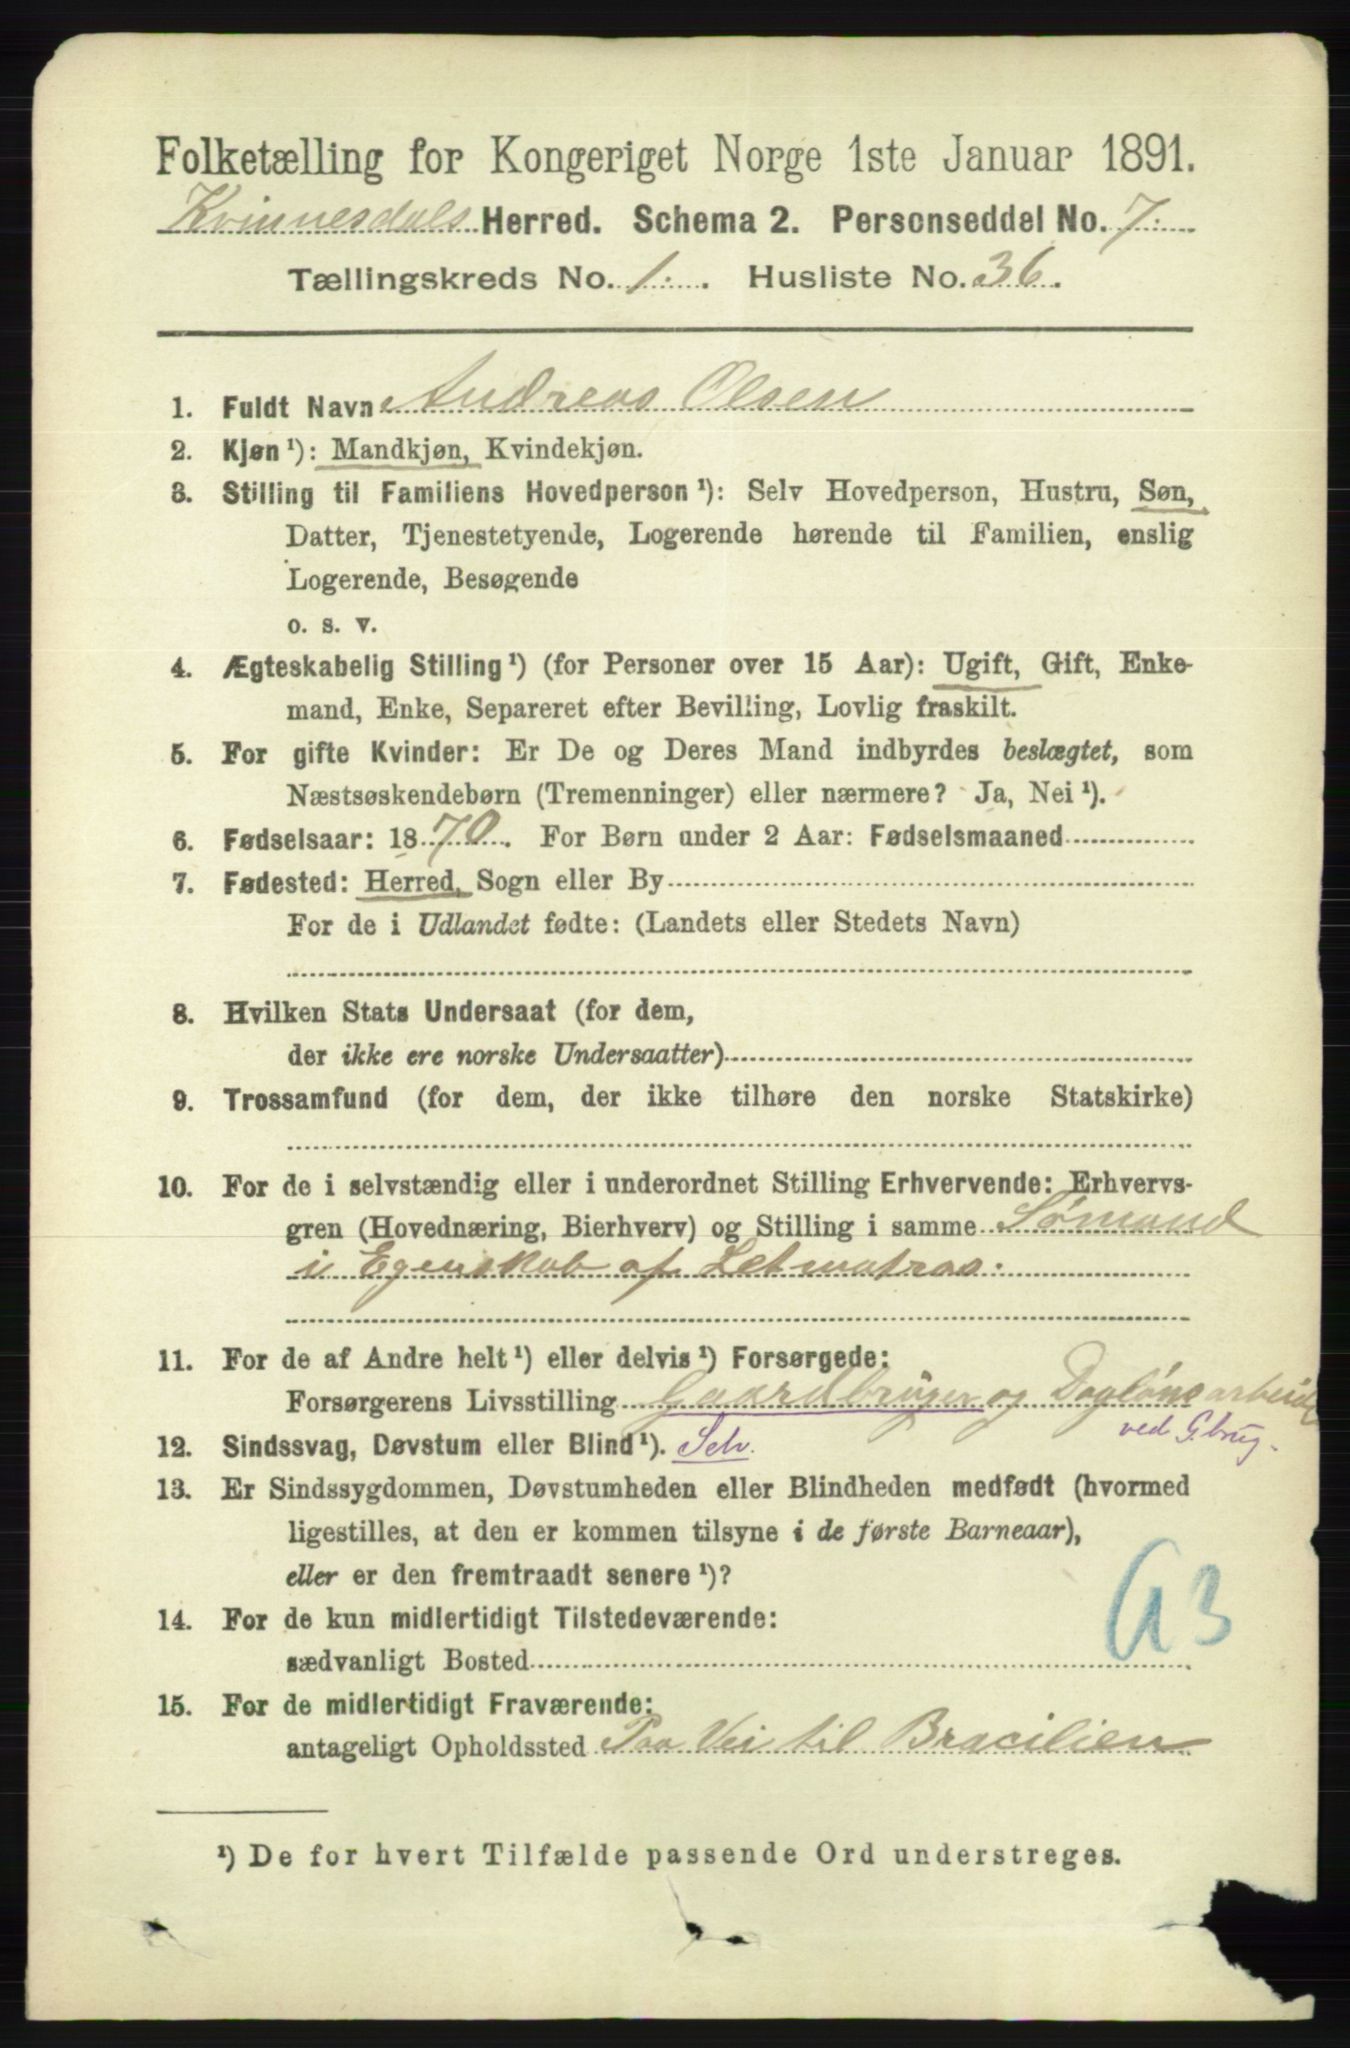 Folketælling for Kongeriget Norge 1ste Januar 1891.
Kvinnesdals Herred. Schema 2. Personseddel No. 7.
Tællingskreds No. 1. Husliste No. 36.
1. Fuldt Navn Andreas Olsen
2. Kjøn ¹): Mandkjøn, Kvindekjøn.
3. Stilling til Familiens Hovedperson ¹): Selv Hovedperson, Hustru, Søn,
Datter, Tjenestetyende, Logerende hørende til Familien, enslig
Logerende, Besøgende
o. s. v.
4. Ægteskabelig Stilling ¹) (for Personer over 15 Aar): Ugift, Gift, Enke-
mand, Enke, Separeret efter Bevilling, Lovlig fraskilt.
5. For gifte Kvinder: Er De og Deres Mand indbyrdes beslægtet, som
Næstsøskendebørn (Tremenninger) eller nærmere? Ja, Nei ¹).
6. Fødselsaar: 1870. For Børn under 2 Aar: Fødselsmaaned
7. Fødested: Herred, Sogn eller By
For de i Udlandet fødte: (Landets eller Stedets Navn)
8. Hvilken Stats Undersaat (for dem,
der ikke ere norske Undersaatter)
9. Trossamfund (for dem, der ikke tilhøre den norske Statskirke)
10. For de i selvstændig eller i underordnet Stilling Erhvervende: Erhvervs-
gren (Hovednæring, Bierhverv) og Stilling i samme Sømand
i Egenskab af Letmatros.
11. For de af Andre helt ¹) eller delvis ¹) Forsørgede:
Forsørgerens Livsstilling Gaardbruger og Daglønsarbeid
ved G.brug.
12. Sindssvag, Døvstum eller Blind ¹). Selv.
13. Er Sindssygdommen, Døvstumheden eller Blindheden medfødt (hvormed
ligestilles, at den er kommen tilsyne i de første Barneaar),
eller er den fremtraadt senere ¹)?
14. For de kun midlertidigt Tilstedeværende:
sædvanligt Bosted
G3
15. For de midlertidigt Fraværende:
antageligt Opholdssted Paa Vei til Bracilien
¹) De for hvert Tilfælde passende Ord understreges.